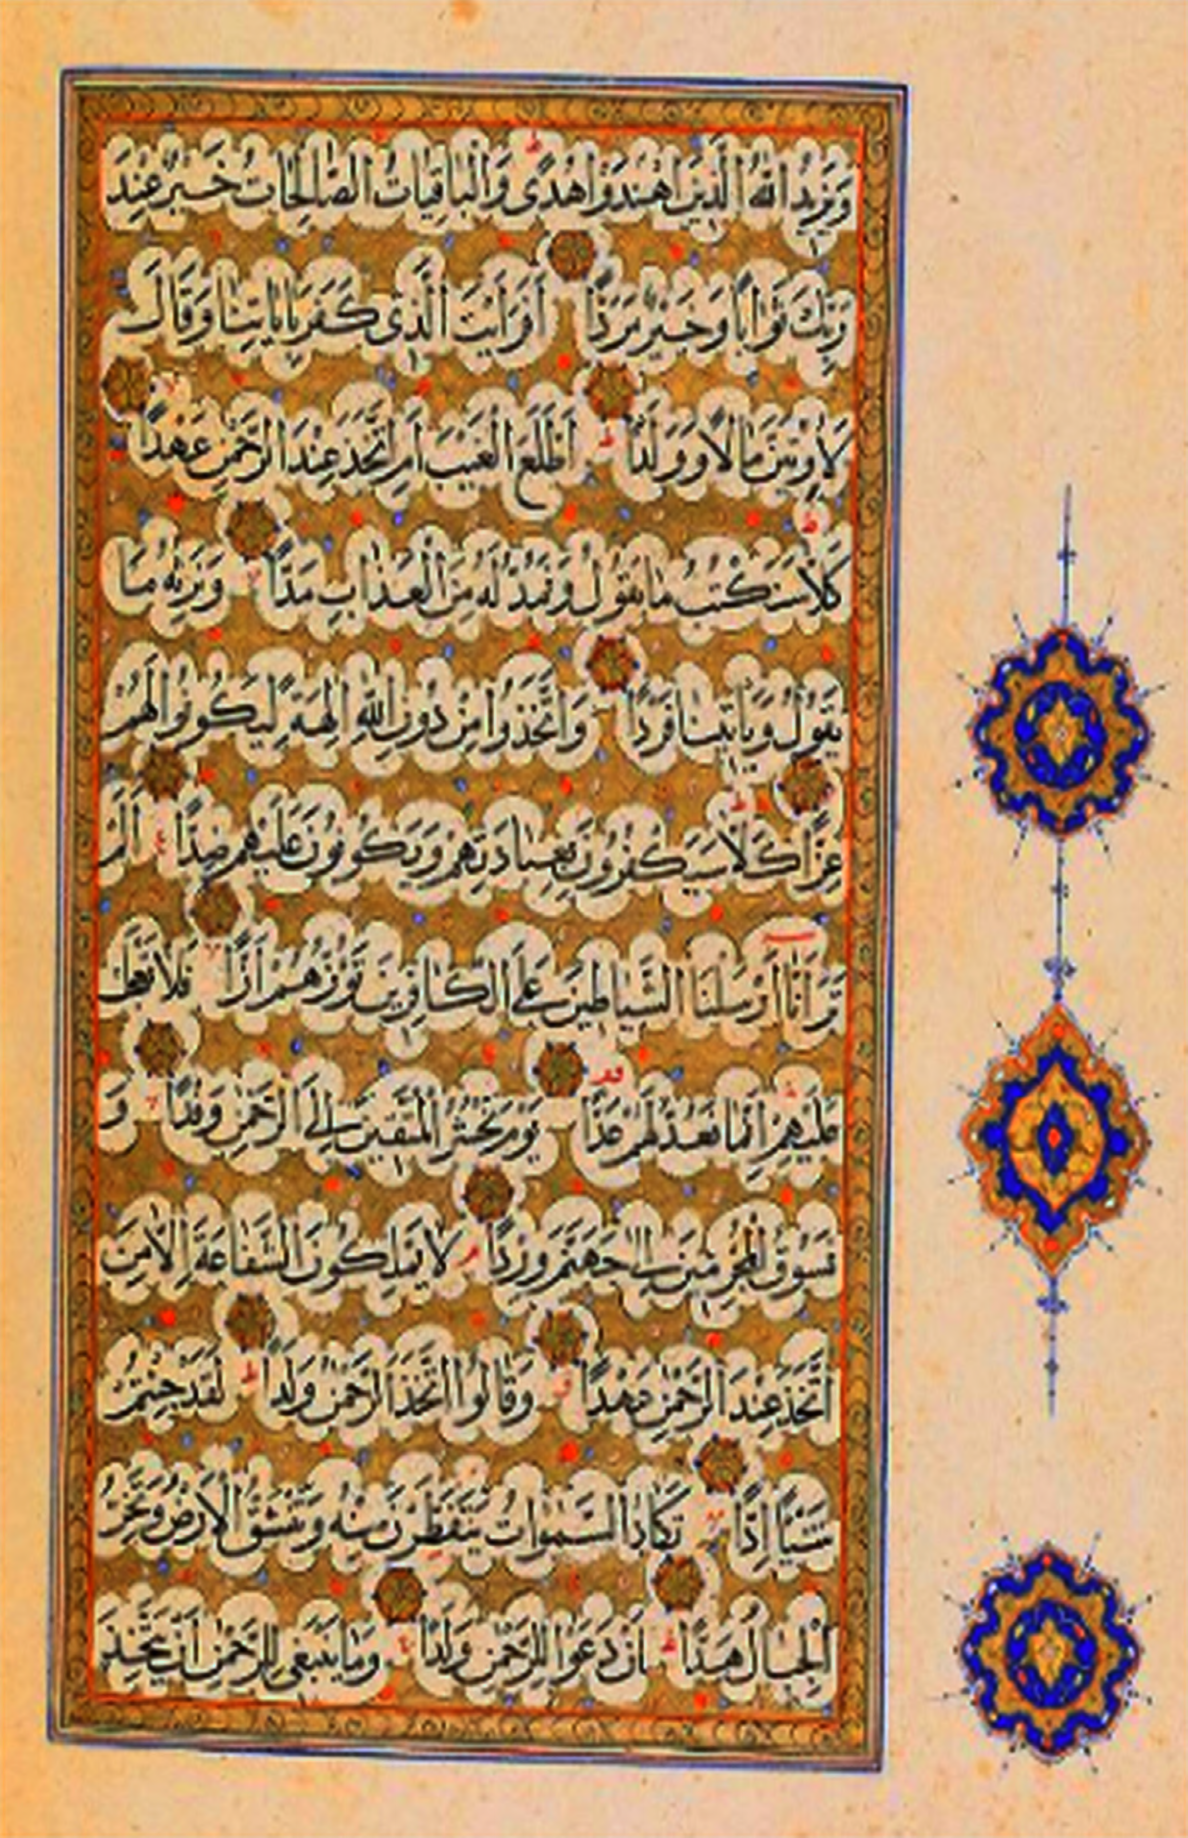 وَيَزِيدُ اللهُ الَّذِينَ اهْتَدَوْا هُدًى وَالْبَاقِيَاتُ الصَّالِحَاتُ خَيْرٌ عِنْدَ
رَبِّكَ ثَوَابًا وَخَيْرٌ مَرَدًّا أَفَرَأَيْتَ الَّذِى كَفَرَ بِآيَاتِنَا وَقَالَ
لَأُوتَيَنَّ مَالًا وَوَلَدًا أَطَّلَعَ الْغَيْبَ أَمِ اتَّخَذَ عِنْدَ الرَّحْمٰنِ عَهْدًا
كَلَّا سَنَكْتُبُ مَا يَقُولُ وَنَمُدُّ لَهُ مِنَ الْعَذَابِ مَدًّا وَنَرِثُهُ مَا
يَقُولُ وَيَأْتِينَا فَرْدًا وَاتَّخَذُوا مِنْ دُونِ اللهِ اٰلِهَةً لِيَكُونُوا لَهُمْ
عِزًّا كَلَّا سَيَكْفُرُونَ بِعِبَادَتِهِمْ وَيَكُونُونَ عَلَيْهِمْ ضِدًّا أَلَمْ
تَرَ أَنَّا أَرْسَلْنَا الشَّيَاطِينَ عَلَى الْكَافِرِينَ تَؤُزُّهُمْ أَزًّا فَلَا تَعْجَلْ
عَلَيْهِمْ إِنَّمَا نَعُدُّ لَهُمْ عَدًّا يَوْمَ نَحْشُرُ الْمُتَّقِينَ إِلَى الرَّحْمٰنِ وَفْدًا وَ
نَسُوقُ الْمُجْرِمِينَ إِلَى جَهَنَّمَ وِرْدًا لَا يَمْلِكُونَ الشَّفَاعَةَ إِلَّا مَنِ
اتَّخَذَ عِنْدَ الرَّحْمٰنِ عَهْدًا وَقَالُوا اتَّخَذَ الرَّحْمٰنُ وَلَدًا لَقَدْ جِئْتُمْ
شَيْئًا إِدًّا تَكَادُ السَّمٰوَاتُ يَتَفَطَّرْنَ مِنْهُ وَتَنْشَقُّ الْأَرْضُ وَتَخِرُّ
الْجِبَالُ هَدًّا أَنْ دَعَوْا لِلرَّحْمٰنِ وَلَدًا وَمَا يَنْبَغِى لِلرَّحْمٰنِ أَنْ يَتَّخِذَ